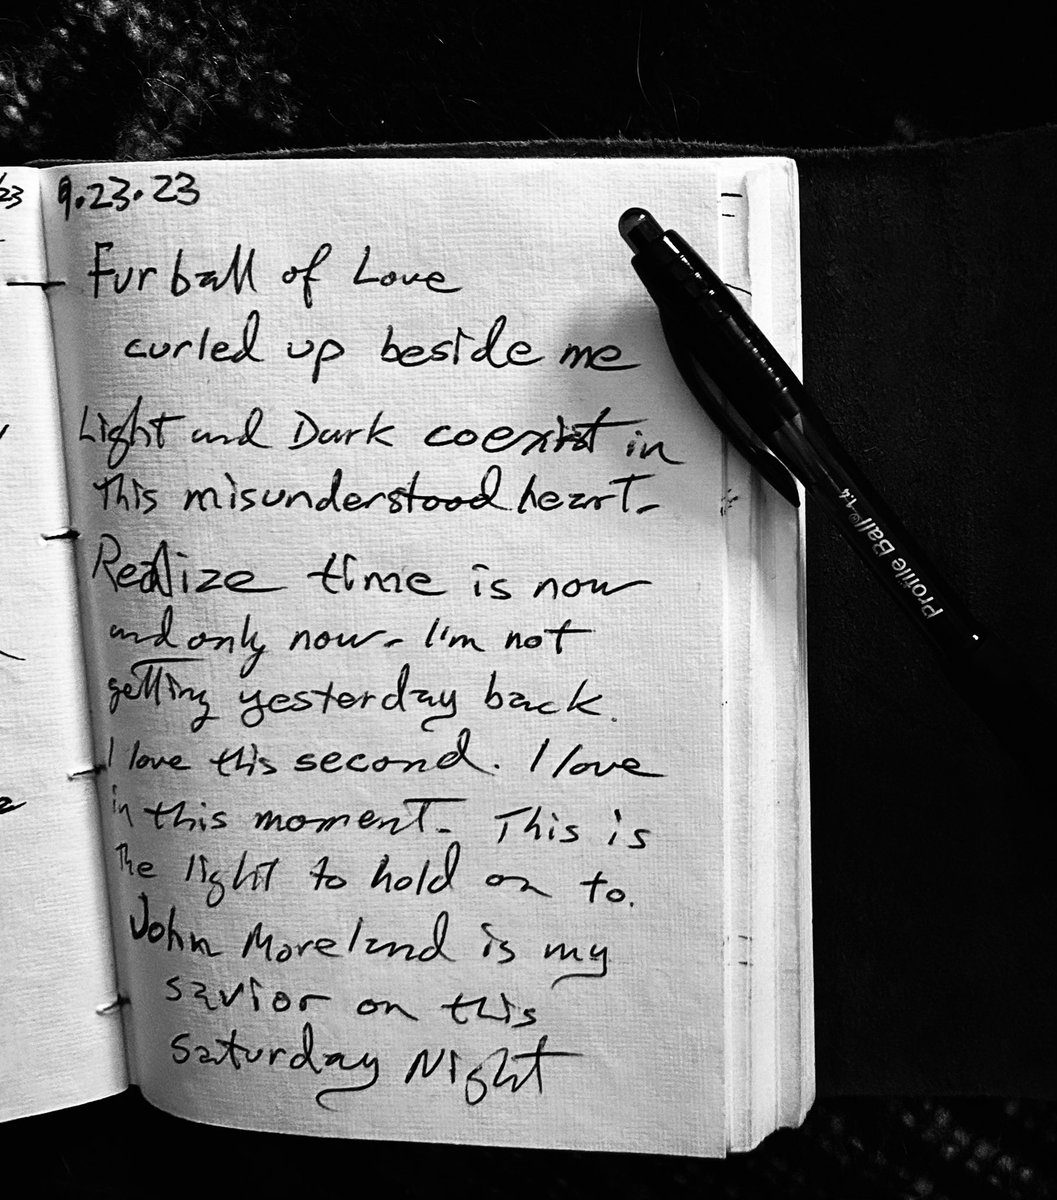 /23
9.23.23
Fur ball of Love
curled up beside me
Light and Dark coexist in
this misunderstood heart.
Realize time is now
and only now. I'm not
getting yesterday back.
I love this second. I love
in this moment. This is
the light to hold on to.
John Moreland is my
savior on this
Saturday Night
Profile Ball® 1.4